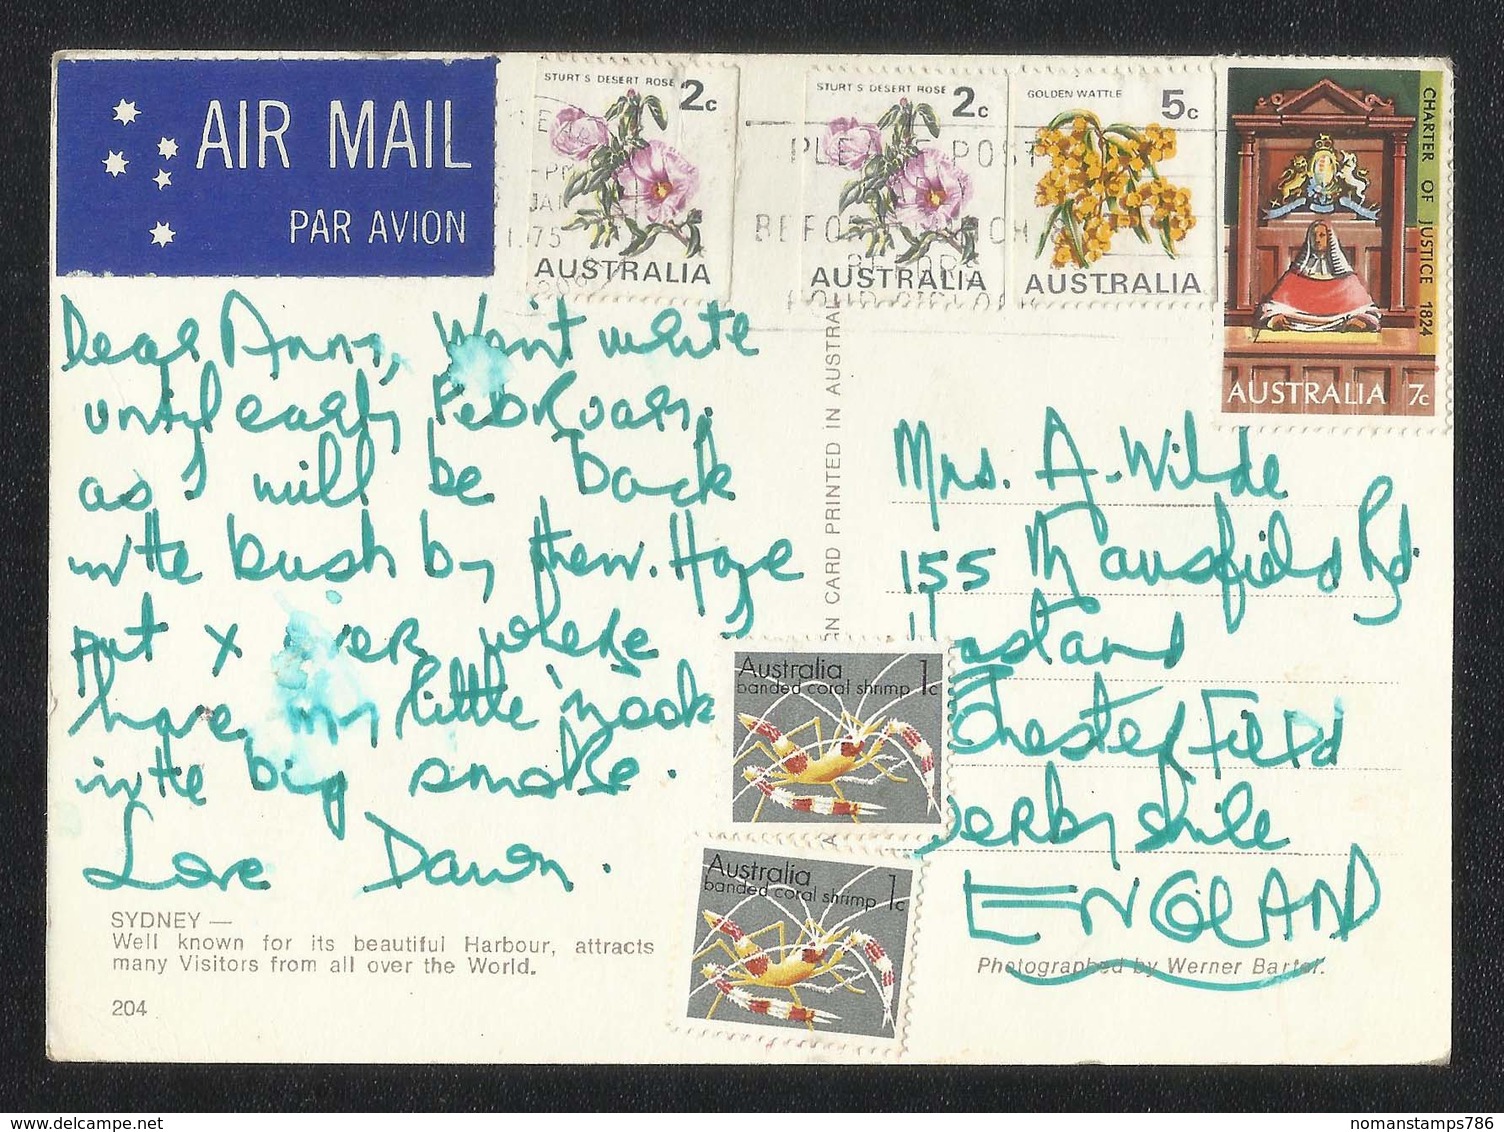 AIR MAIL
PAR AVION
STURT'S DESERT ROSE 2c
AUSTRALIA
STURT'S DESERT ROSE 2c
AUSTRALIA
GOLDEN WATTLE 5c
AUSTRALIA
CHARTER OF JUSTICE 1824
AUSTRALIA 7c
PM
JAN
1975
PLEASE POST
BEFORE
Dear Anna, Wont write
until early February.
as I will be back
in the bush by then. Have
put x over where
have my little nook
in the big smoke.
Love Dawn.
SYDNEY —
Well known for its beautiful Harbour, attracts
many Visitors from all over the World.
204
N CARD PRINTED IN AUSTRAL
Mrs. A. Wilde
155 Mansfield Rd.
Hasland
Chesterfield
Derbyshire
ENGLAND
Photographed by Werner Bartel.
Australia 1c
banded coral shrimp
Australia 1c
banded coral shrimp
nomanstamps786